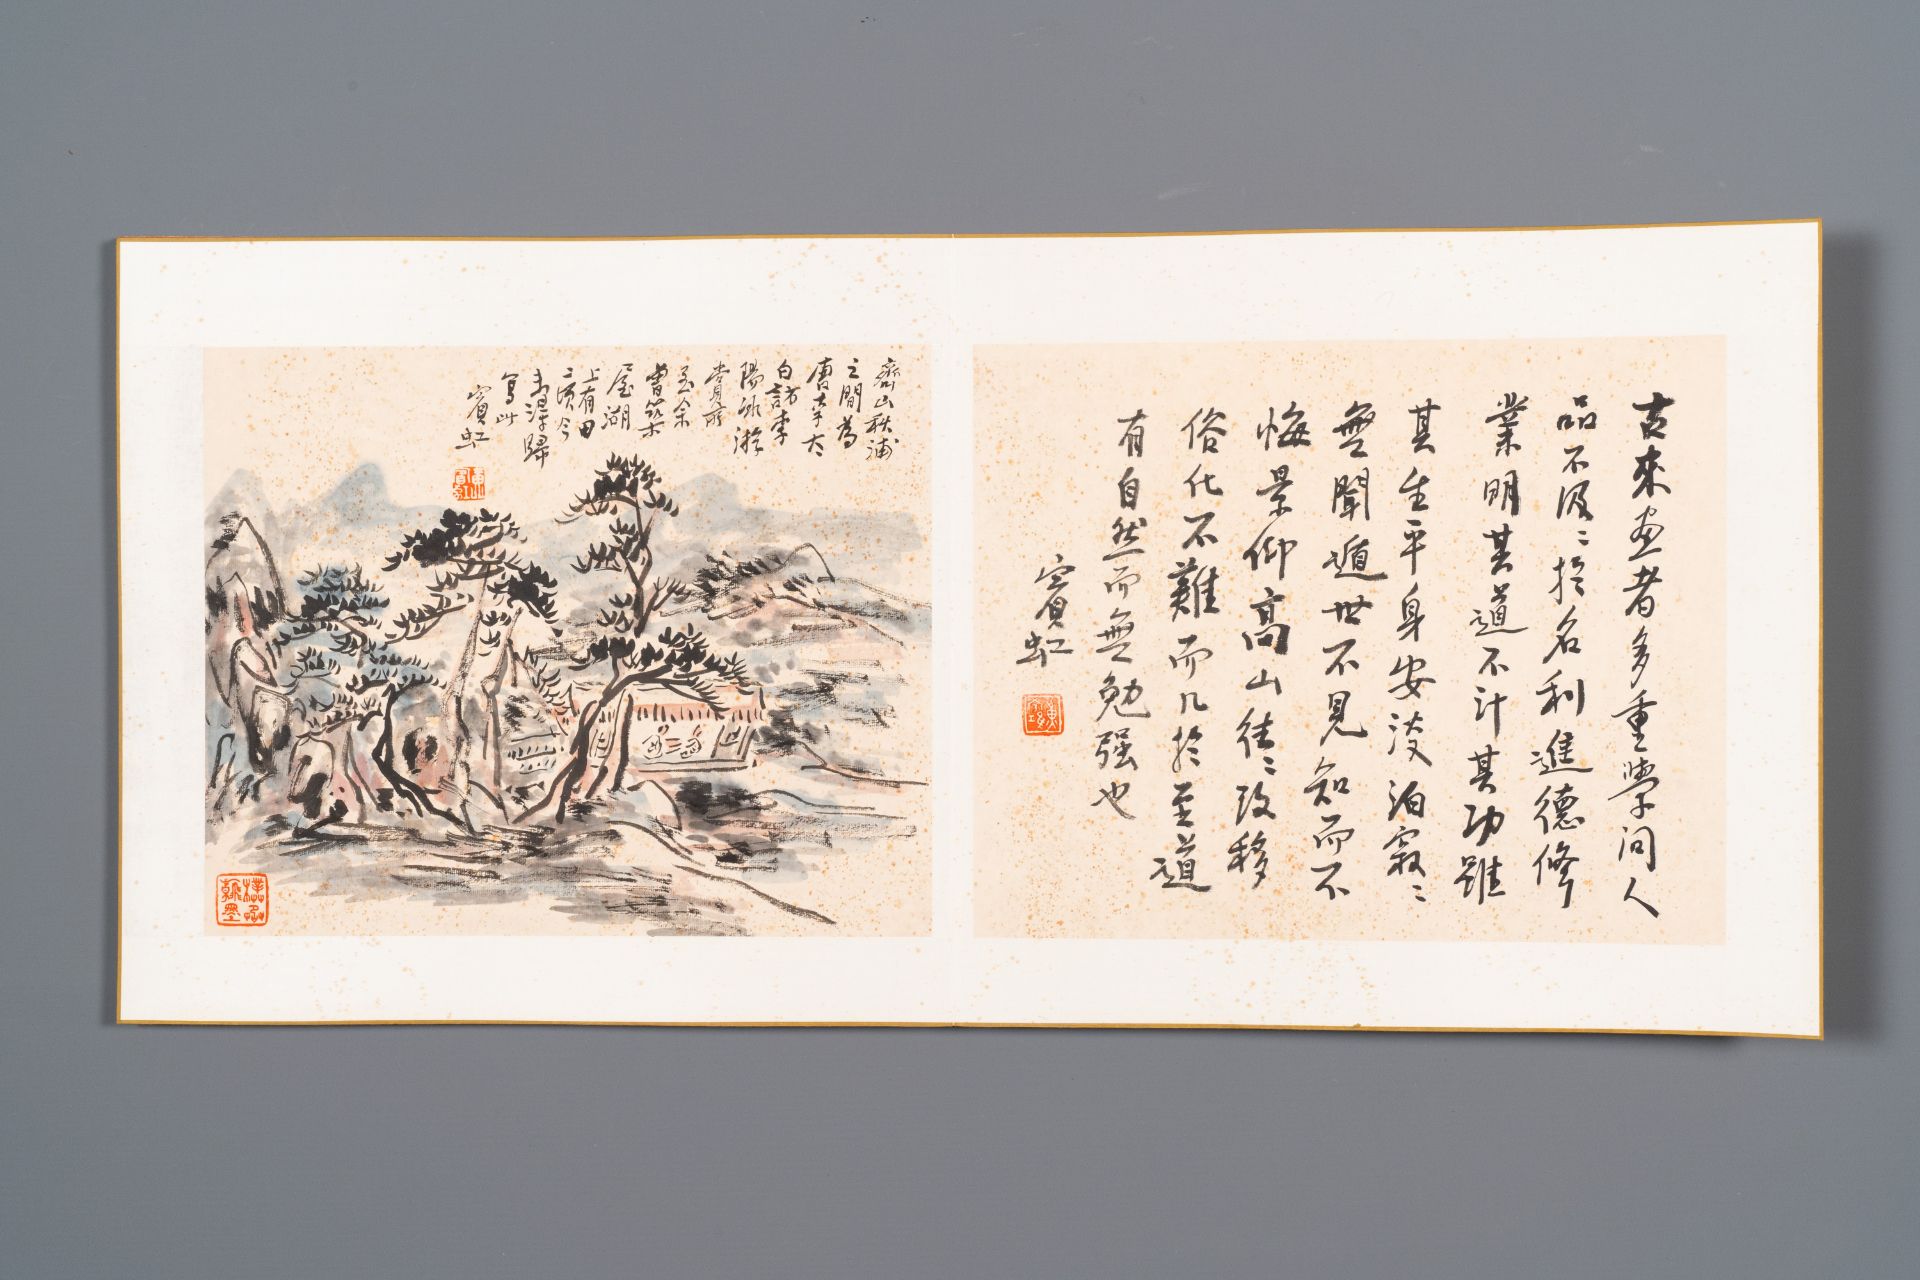 古來畫者多重學問人
品不汲〻於名利進德修
業明其道不計其功雖
其生平身安淡泊寂〻
無聞遁世不見知而不
悔景仰高山往〻改移
俗化不難而几於至道
有自然而無勉强也
賓虹
齊山秋浦
之間為
唐李太
白諸李
陽冰游
賞所
至余
曾築
屋湖
上有田
二頃今
未得歸
寫此
賓虹